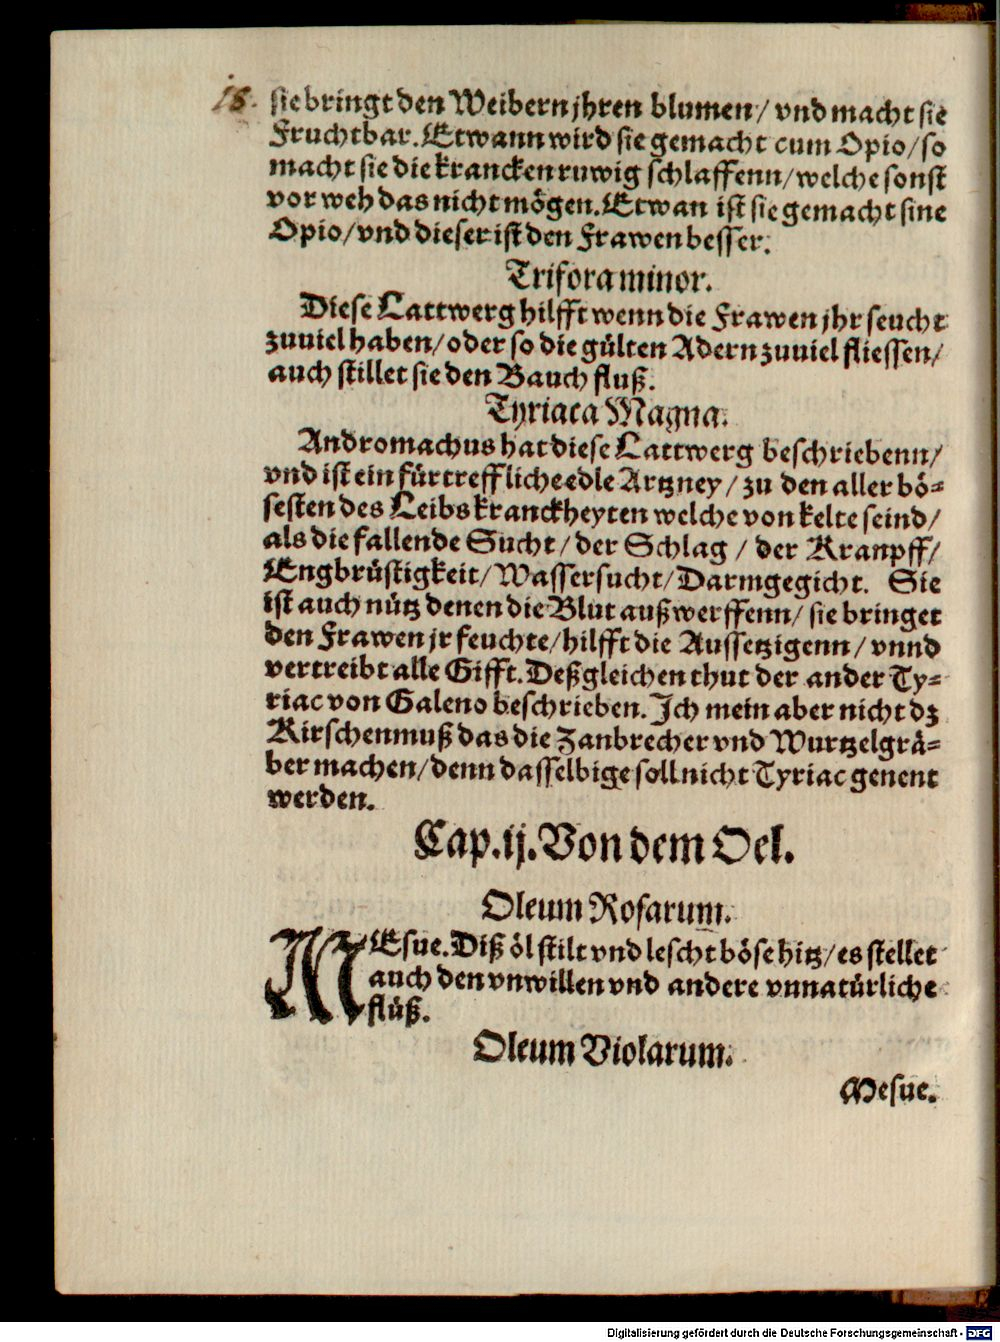 18.
sie bringt den Weibern jhren blumen/ vnd macht sie
Fruchtbar. Etwann wird sie gemacht cum Opio/ so
macht sie die krancken ruwig schlaffenn/ welche sonst
vor weh das nicht mögen. Etwan ist sie gemacht sine
Opio/ vnd dieser ist den Frawen besser.
Trifora minor.
Diese Lattwerg hilfft wenn die Frawen jhr feucht
zuuiel haben/ oder so die gülten Adern zuuiel fliessen/
auch stillet sie den Bauch fluß.
Tyriaca Magna.
Andromachus hat diese Lattwerg beschriebenn/
vnd ist ein fürtreffliche edle Artzney/ zu den aller bö-
sesten des Leibs kranckheyten welche von kelte seind/
als die fallende Sucht/ der Schlag/ der Kranpff/
Engbrüstigkeit/ Wassersucht/ Darmgegicht. Sie
ist auch nütz denen die Blut außwerffenn/ sie bringet
den Frawen jr feuchte/ hilfft die Aussetzigenn/ vnnd
vertreibt alle Gifft. Deßgleichen thut der ander Ty-
riac von Galeno beschrieben. Ich mein aber nicht dz
Kirschenmuß das die Zanbrecher vnd Wurtzelgrä-
ber machen/ denn dasselbige soll nicht Tyriac genent
werden.
Cap. ij. Von dem Oel.
Oleum Rosarum.
MEsue. Diß öl stilt vnd lescht böse hitz/ es stellet
auch den vnwillen vnd andere vnnatürliche
flüß.
Oleum Violarum.
Mesue.
Digitalisierung gefördert durch die Deutsche Forschungsgemeinschaft - DFG